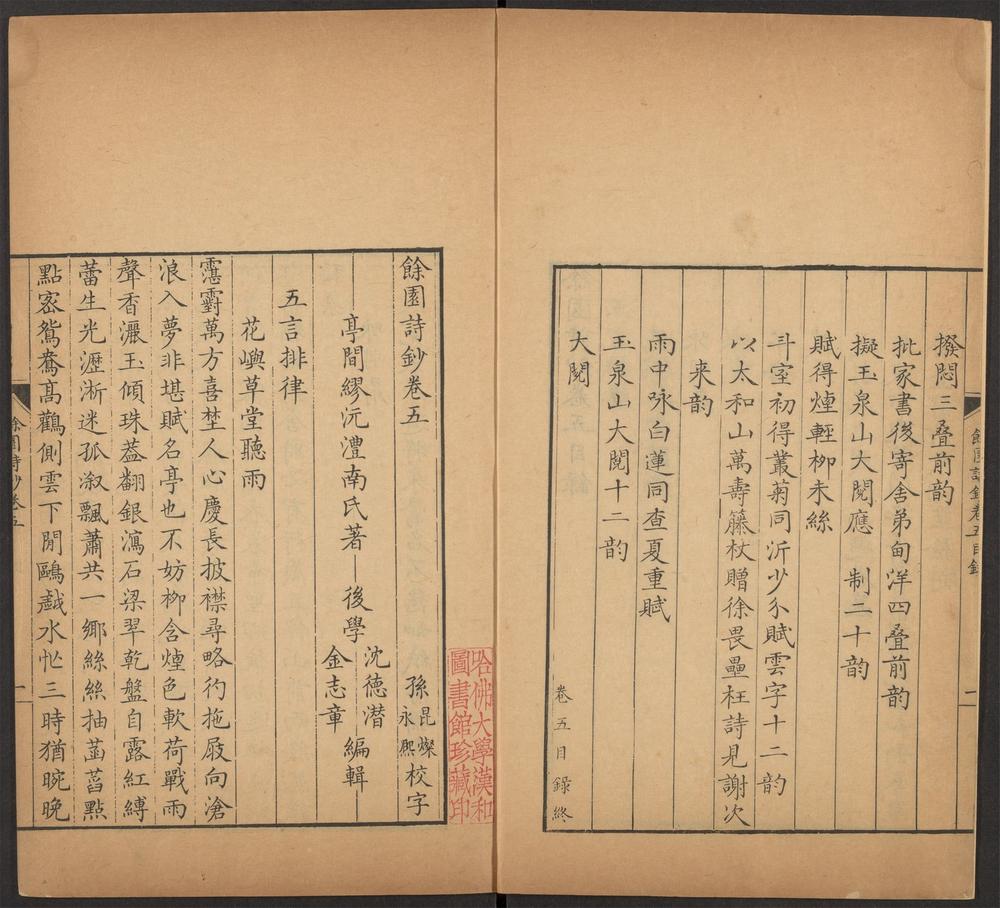 撥悶三叠前韵
批家書後寄舍弟甸洋四叠前韵
擬玉泉山大閱應 制二十韵
賦得煙輕柳未絲
斗室初得叢菊同沂少尒賦雲字十二韵
以太和山萬壽籐杖贈徐畏壘枉詩見謝次
来韵
雨中咏白蓮同查夏重賦
玉泉山大閱十二韵
大閱
卷五目録終
餘園詩鈔卷五目録
二
哈佛大學漢和
圖書館珍藏印
餘園詩鈔卷五
孫 昆燦 永熙 校字
亭間繆沅澧南氏著 後學 沈德潛 金志章 編輯
五言排律
花嶼草堂聽雨
霮霨萬方喜埜人心慶長披襟尋略彴拖屐向滄
浪入夢非堪賦名亭也不妨柳含煙色軟荷戰雨
聲香灑玉傾珠葢翻銀瀉石梁翠乾盤自露紅縛
蕾生光瀝淅迷孤溆飄蕭共一鄉絲絲抽菡萏點
點宻鴛鴦高鸛側雲下閒鷗戱水忙三時猶晼晚
餘園詩鈔卷五
一